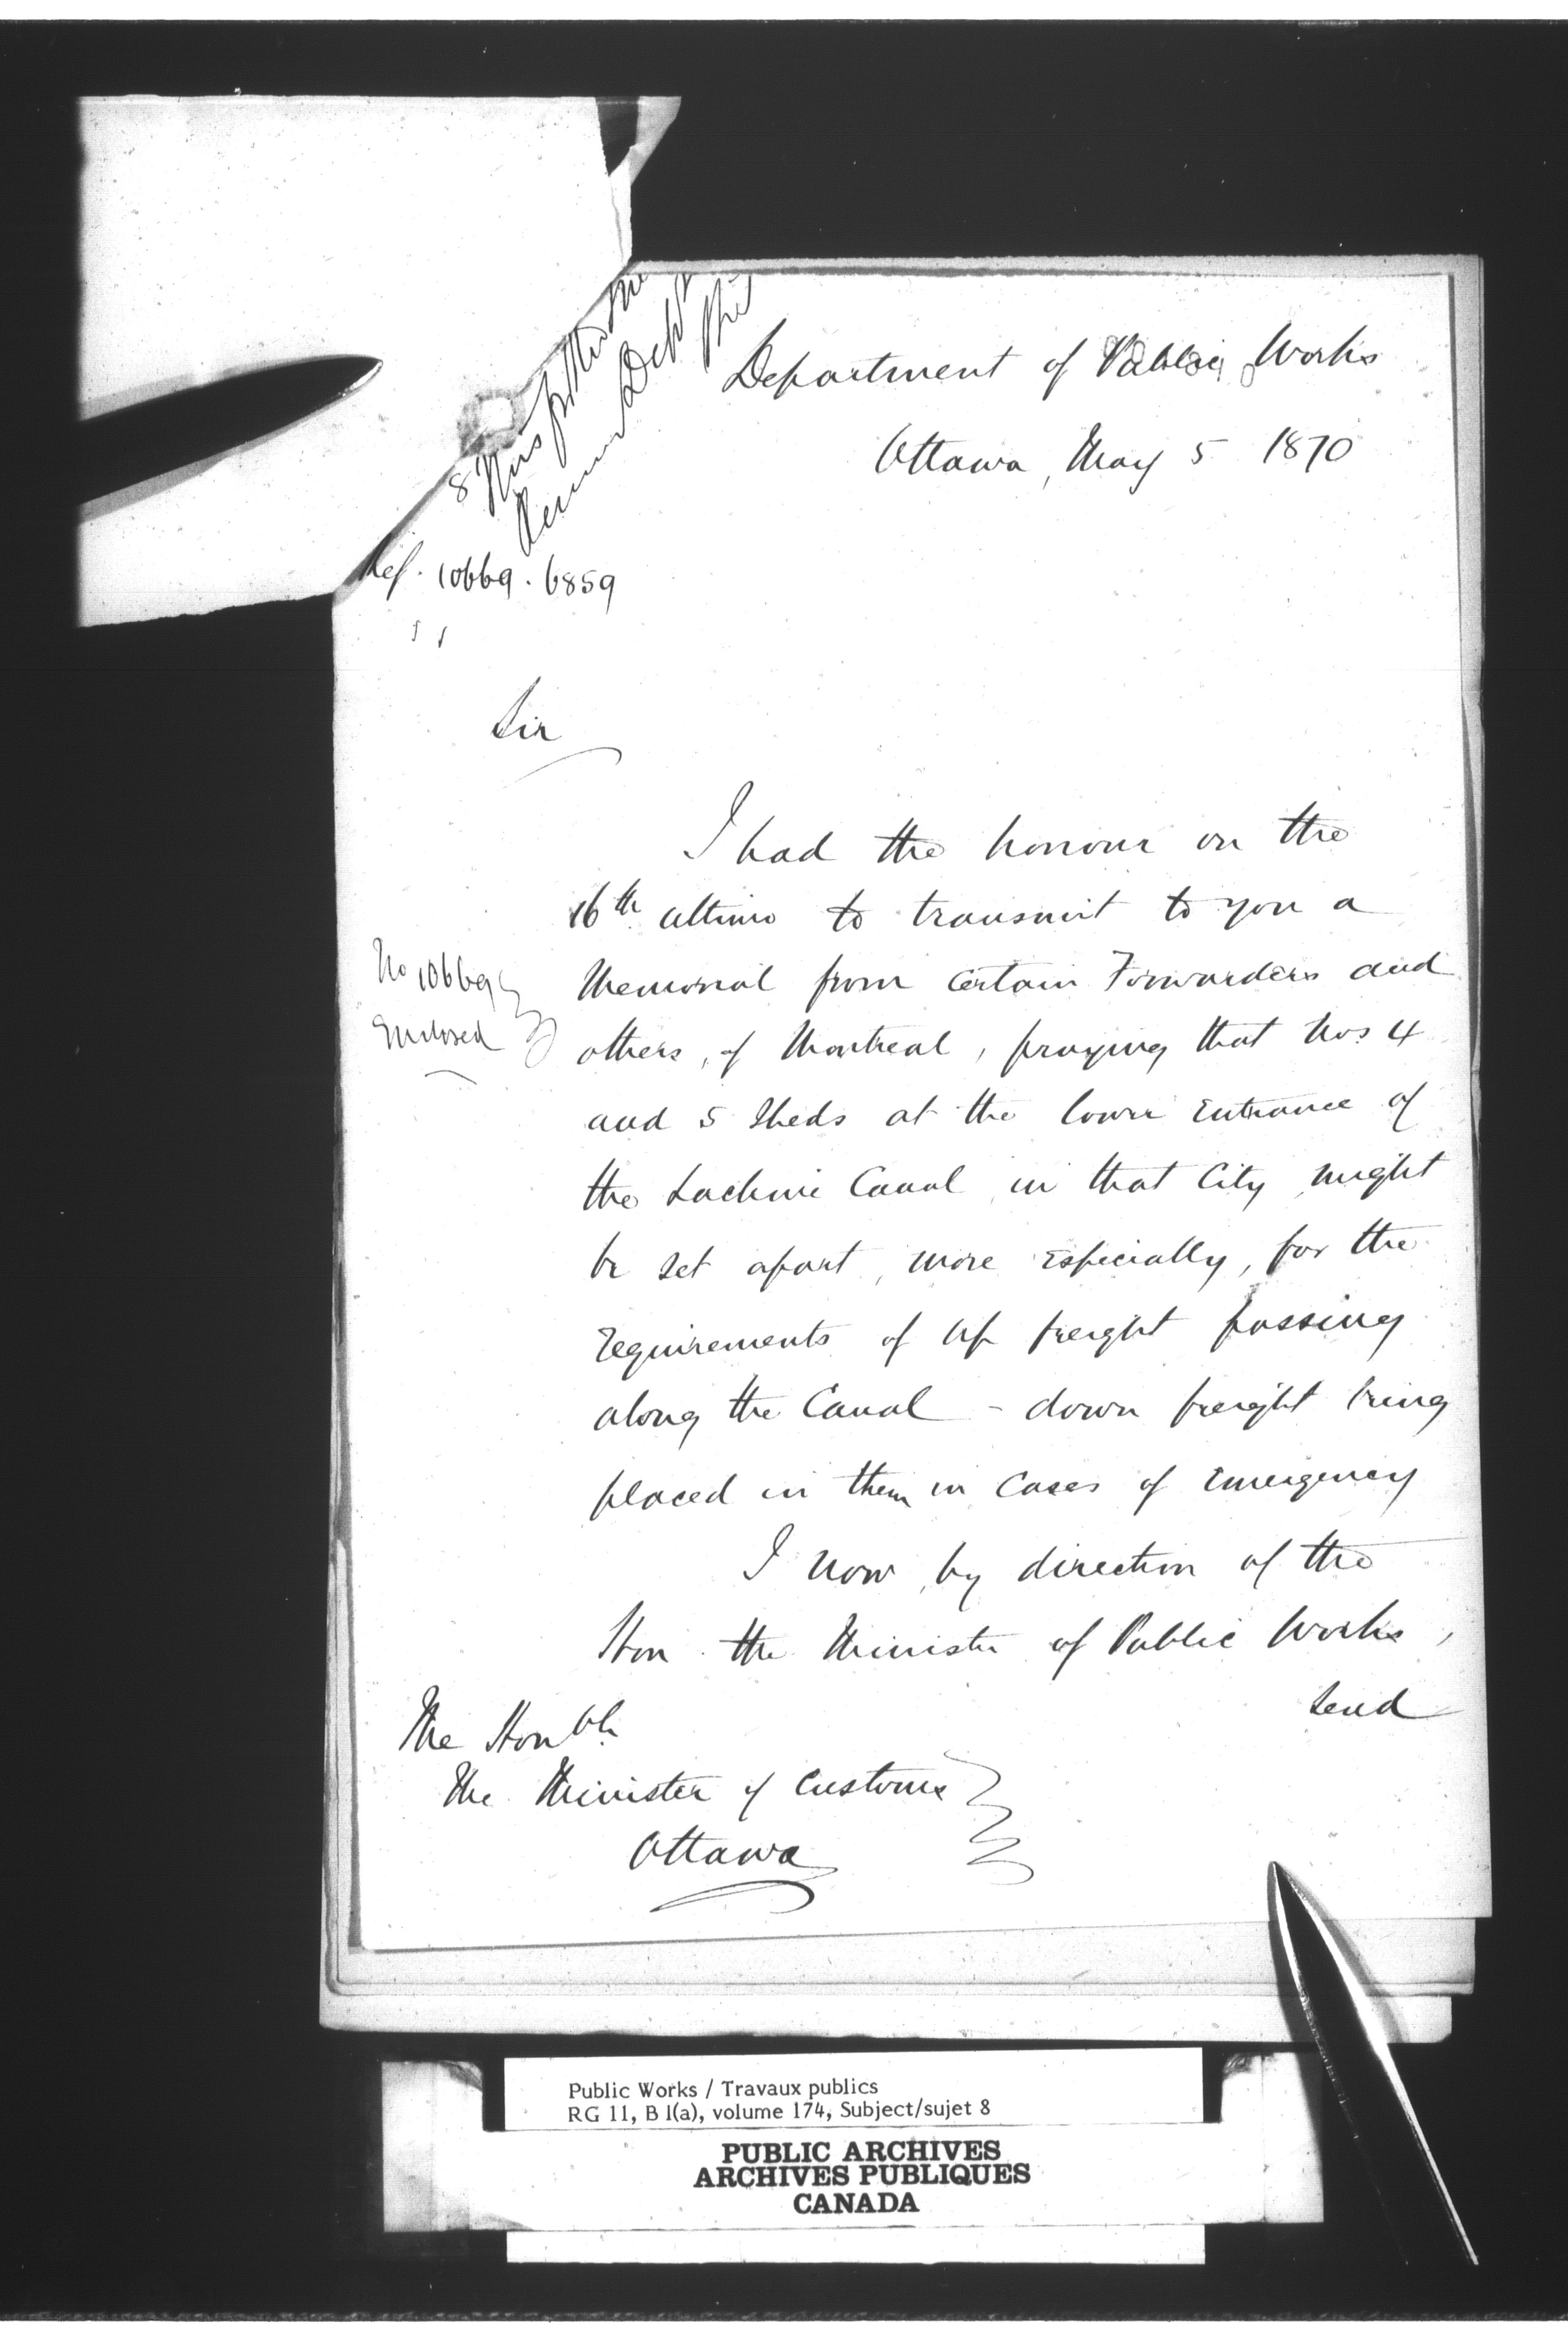 Department of Public Works
Ottawa, May 5 1870
8
Ref. 10669 . 6859
Sir
I had the honour on the
16th ultimo to transmit to you a
Memorial from certain Forwarders and
No 10669
Enclosed
others, of Montreal, praying that Nos 4
and 5 Sheds at the lower Entrance of
the Lachine Canal in that City might
be set apart, more Especially, for the
requirements of up freight passing
along the Canal - down freight being
placed in them in Cases of Emergency
I now, by direction of the
Hon the Minister of Public Works,
send
The Honble
The Minister of Customs
Ottawa
Public Works / Travaux publics
RG 11, B 1(a), volume 174, Subject/sujet 8
PUBLIC ARCHIVES
ARCHIVES PUBLIQUES
CANADA